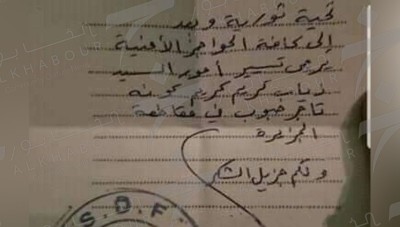 تحية ثورية وبعد
إلى كافة الحواجز الأمنية
يرجى تسيير أمور السيد
ذياب كريم كريم كونه
تاجر حبوب في مقاطعة
الجزيرة
ولكم جزيل الشكر
S.D.F.